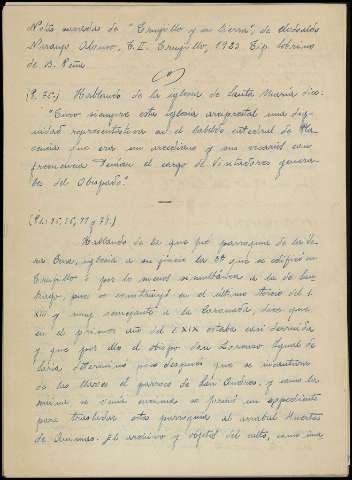 Notas sacadas de "Trujillo y su tierra", de Clodoaldo
Naranjo Alonso, T. II. Trujillo, 1923. Tip. Sobrino
de B. Peña
(P. 75.) Hablando de la iglesia de Santa María dice:
"Tuvo siempre esta iglesia arciprestal una dig-
nidad representativa en el cabildo catedral de Pla-
cencia que era un arcediano y sus vicarios con
frecuencia tenían el cargo de Visitadores genera-
les del Obispado".
(Pls. 75, 76, 77 y 78.)
Hablando de la que fué parroquia de la Ve-
ra Cruz, iglesia a su juicio la 2ª que se edificó en
Trujillo o por lo menos simultánea a la de San-
tiago, pues se construyó en el último tercio del S.
XIII y muy semejante a la Coronada, dice que
en el primer año del S. XIX estaba casi derruída
y que por ello el obispo don Lorenzo Igual de
Soria determinó poco después que se incautara
de las llaves el párroco de San Andrés, y como la
misma se venía encima se formó un expediente
para trasladar esta parroquia al arrabal Huertas
de Ánimas. El archivo y objetos del culto, como una